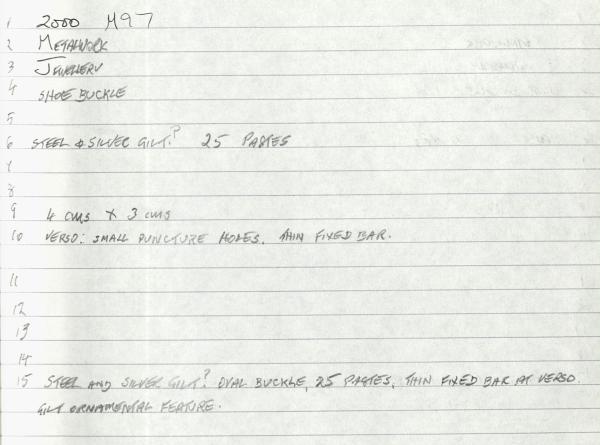 1 2000 M97
2 METALWORK
3 JEWELLERY
4 SHOE BUCKLE
5
6 STEEL & SILVER GILT? 25 PASTES
7
8
9 4 cms x 3 cms
10 VERSO: SMALL PUNCTURE HOLES. THIN FIXED BAR.
11
12
13
14
15 STEEL AND SILVER GILT? OVAL BUCKLE, 25 PASTES, THIN FIXED BAR AT VERSO.
GILT ORNAMENTAL FEATURE.